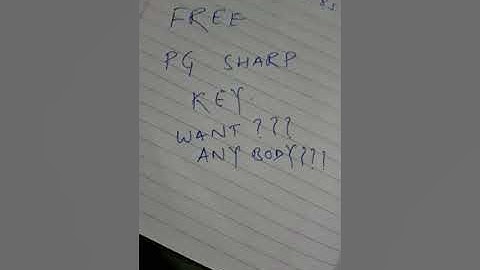 FREE
PG SHARP
KEY.
WANT ???
ANY BODY???